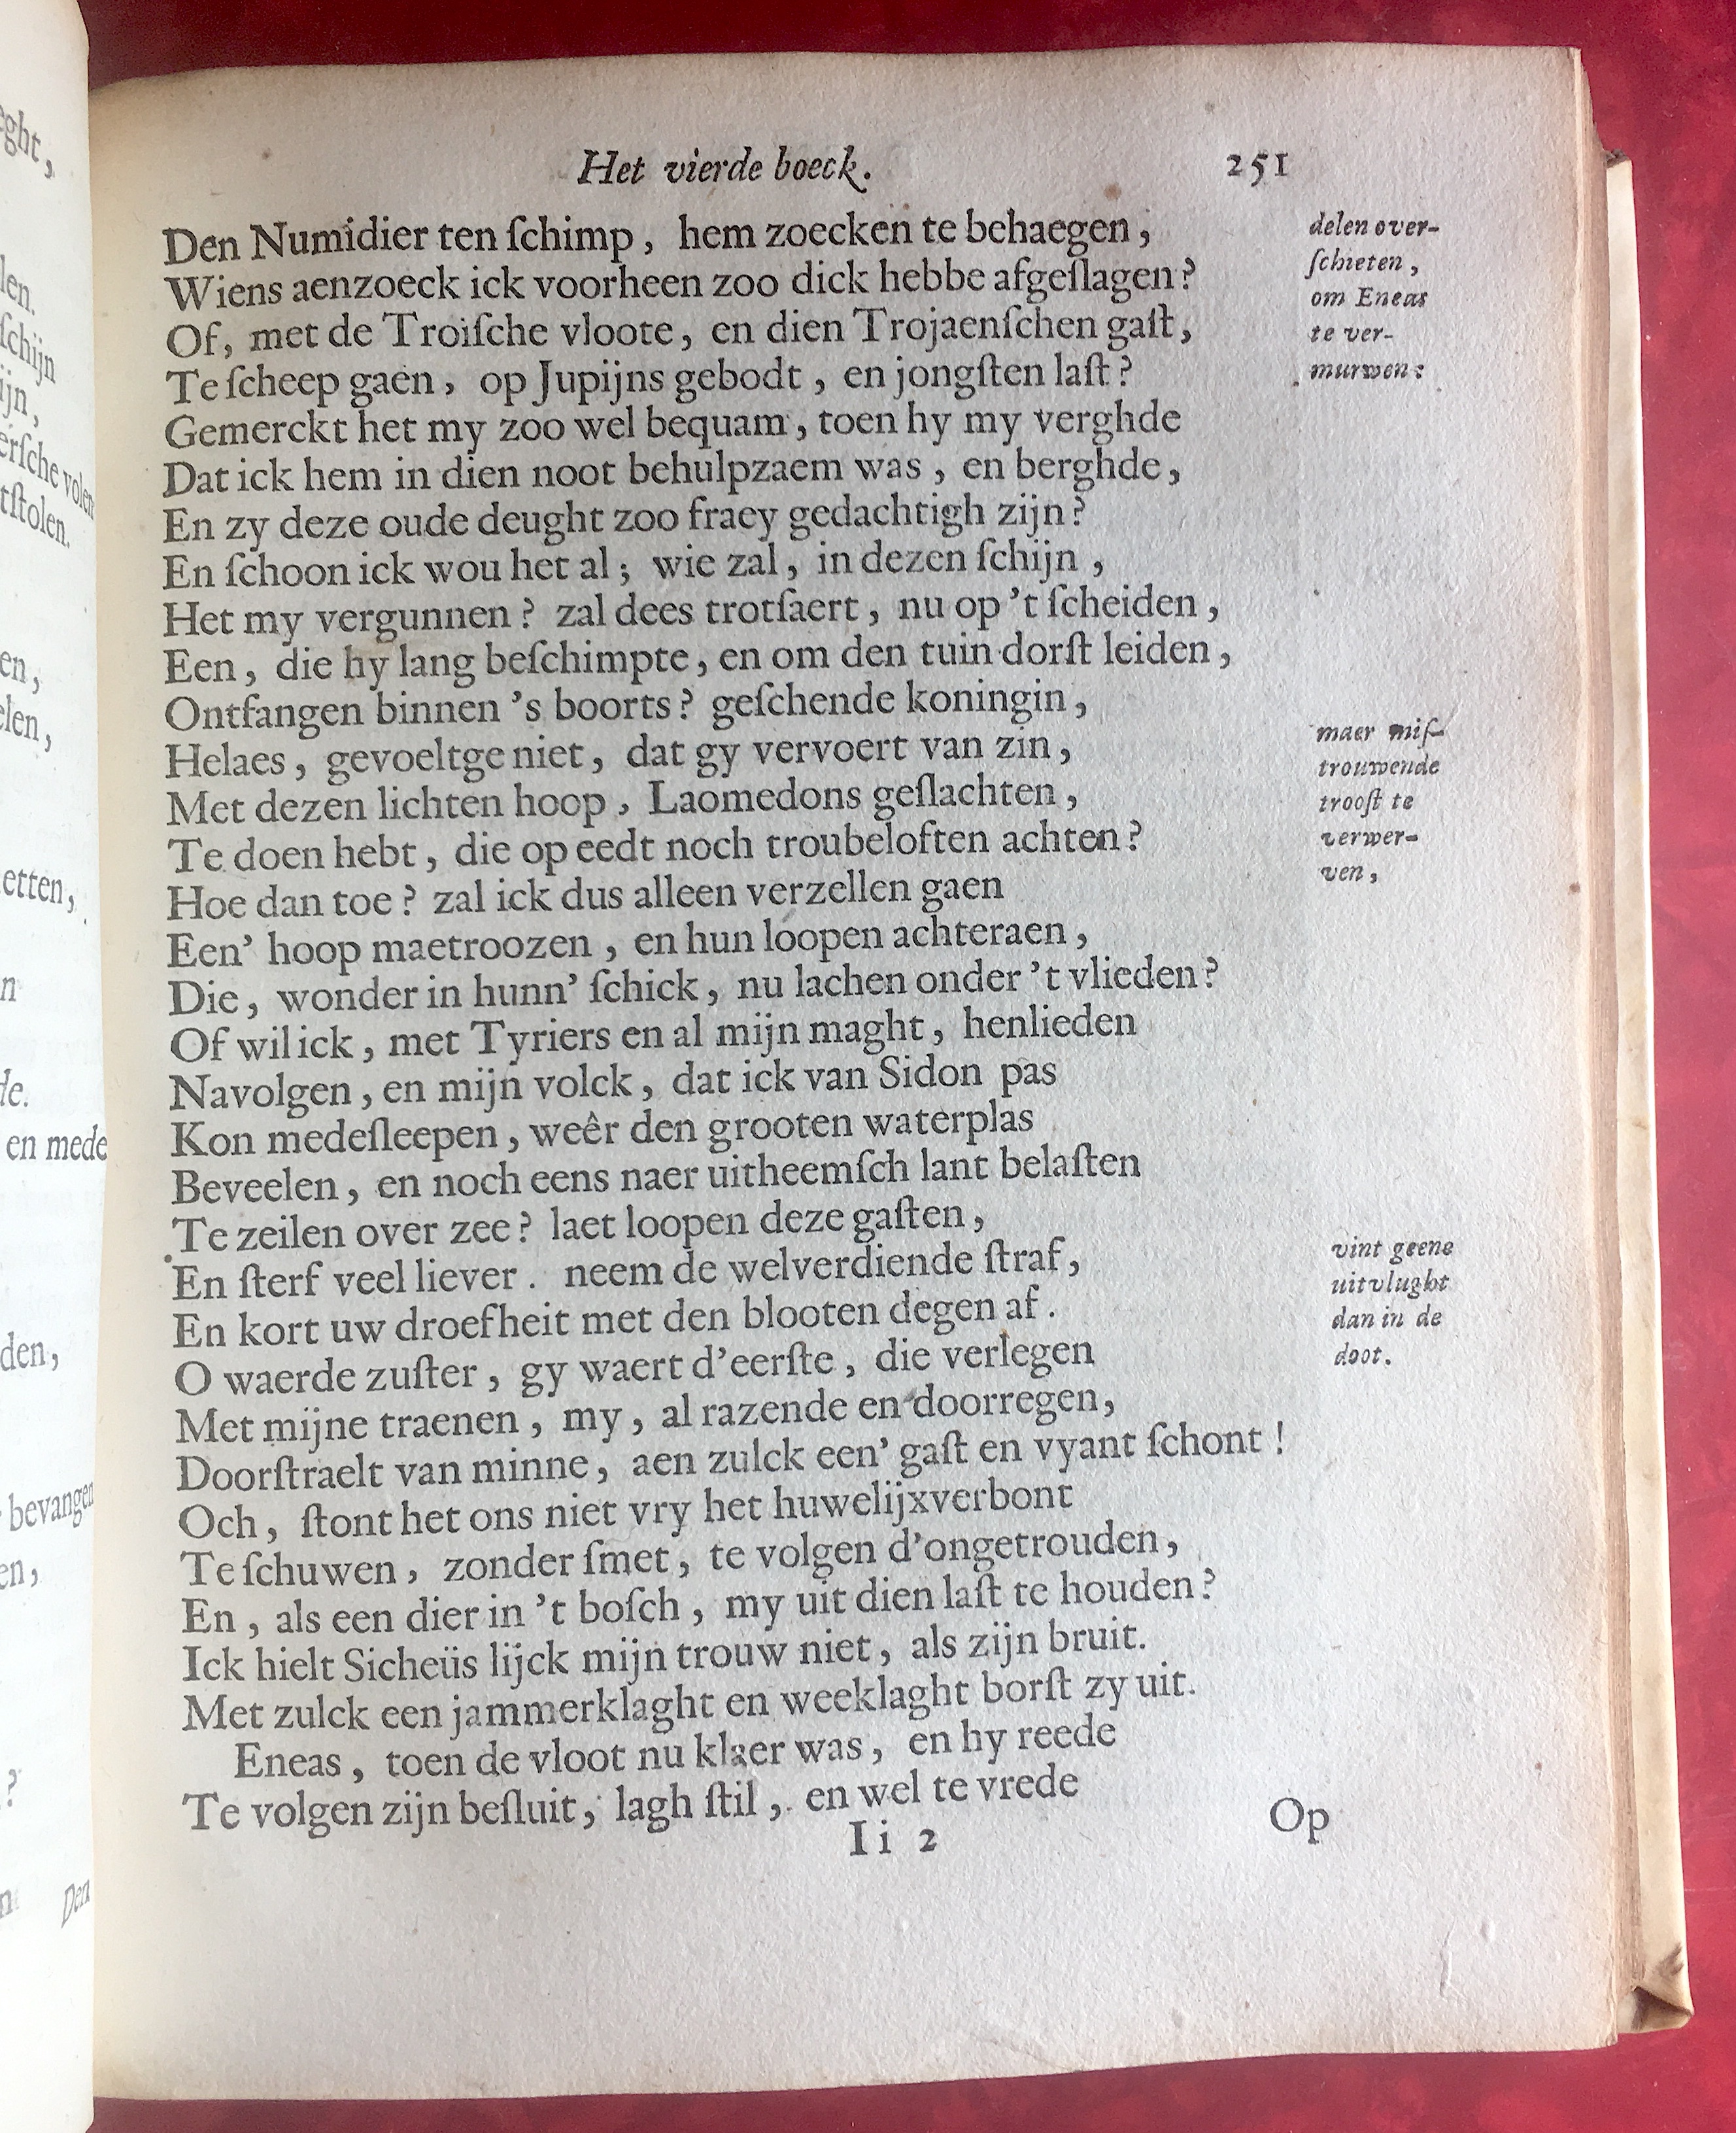 Het vierde boeck.
251
Den Numidier ten ſchimp, hem zoecken te behaegen,
Wiens aenzoeck ick voorheen zoo dick hebbe afgeſlagen?
Of, met de Troiſche vloote, en dien Trojaenſchen gaſt,
Te ſcheep gaen, op Jupijns gebodt, en jongſten laſt?
Gemerckt het my zoo wel bequam, toen hy my verghde
Dat ick hem in dien noot behulpzaem was, en berghde,
En zy deze oude deught zoo fraey gedachtigh zijn?
En ſchoon ick wou het al; wie zal, in dezen ſchijn,
Het my vergunnen? zal dees trotſaert, nu op 't ſcheiden,
Een, die hy lang beſchimpte, en om den tuin dorſt leiden,
Ontfangen binnen 's boorts? geſchende koningin,
Helaes, gevoeltge niet, dat gy vervoert van zin,
Met dezen lichten hoop, Laomedons geſlachten,
Te doen hebt, die op eedt noch troubeloften achten?
Hoe dan toe? zal ick dus alleen verzellen gaen
Een' hoop maetroozen, en hun loopen achteraen,
Die, wonder in hunn' ſchick, nu lachen onder 't vlieden?
Of wil ick, met Tyriers en al mijn maght, henlieden
Navolgen, en mijn volck, dat ick van Sidon pas
Kon medeſleepen, weêr den grooten waterplas
Beveelen, en noch eens naer uitheemſch lant belaſten
Te zeilen over zee? laet loopen deze gaſten,
En ſterf veel liever. neem de welverdiende ſtraf,
En kort uw droefheit met den blooten degen af.
O waerde zuſter, gy waert d'eerſte, die verlegen
Met mijne traenen, my, al razende en doorregen,
Doorſtraelt van minne, aen zulck een' gaſt en vyant ſchont!
Och, ſtont het ons niet vry het huwelijxverbont
Te ſchuwen, zonder ſmet, te volgen d'ongetrouden,
En, als een dier in 't boſch, my uit dien laſt te houden?
Ick hielt Sicheüs lijck mijn trouw niet, als zijn bruit.
Met zulck een jammerklaght en weeklaght borſt zy uit.
Eneas, toen de vloot nu klaer was, en hy reede
Te volgen zijn beſluit, lagh ſtil, en wel te vrede
Ii 2
Op
delen over-
ſchieten,
om Eneas
te ver-
murwen:
maer miſ-
trouwende
trooſt te
verwer-
ven,
vint geene
uitvlught
dan in de
doot.
eght,
len.
ſchijn
ijn,
erſche volen
tſtolen.
en,
elen,
etten,
n
de.
en mede
den,
bevangen
en,
?
n
Den